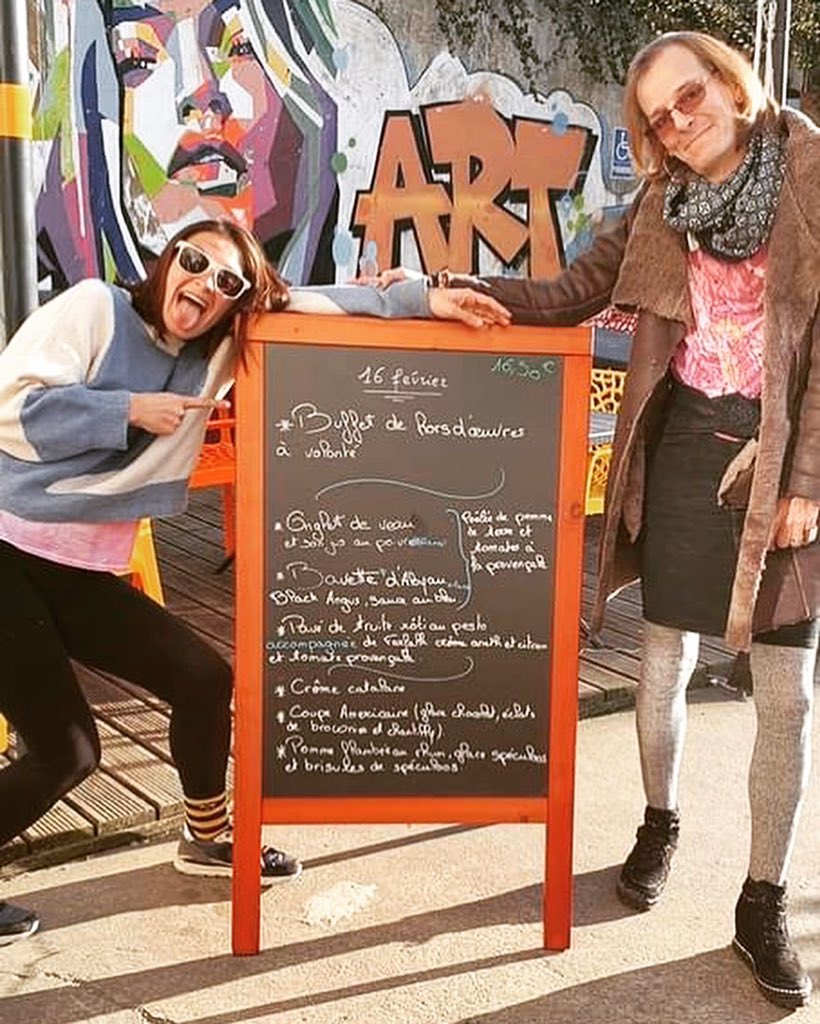 ART
16 février
16,50€
* Buffet de hors d'œuvres
à volonté
* Onglet de veau
et son jus au poivre
* Bavette d'Aloyau
Black Angus, sauce au bleu
Poêlée de pomme
de terre et
tomates à
la provençale
* Pavé de truite rôti au pesto
accompagnée de crème aneth et citron
et tomate provençale.
* Crème catalane
* Coupe Américaine (glace chocolat, éclats
de brownie et chantilly).
* Pomme flambée au rhum, glace spéculoos
et brisures de spéculoos.